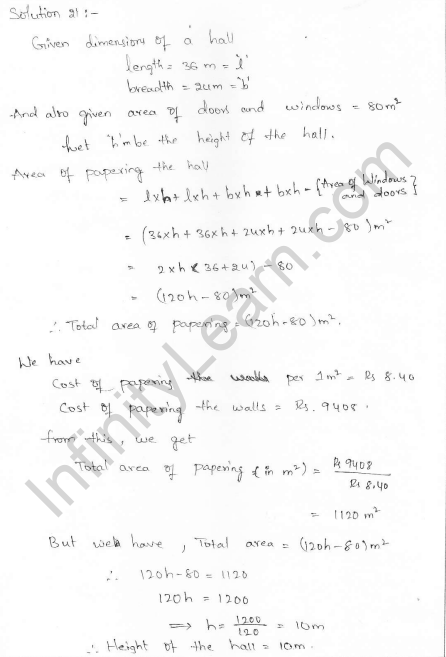 Solution 21:-
Given dimensions of a hall
length = 36 m = 'l'
breadth = 24m = 'b'
And also given area of doors and windows = 80m²
Let 'h'm be the height of the hall.
Area of papering the hall
= l×h + l×h + b×h + b×h - {Area of Windows and doors}
= (36×h + 36×h + 24×h + 24×h - 80) m²
= 2×h (36+24) - 80
= (120h - 80) m²
∴ Total area of papering = (120h - 80) m².
We have
Cost of papering the walls per 1m² = Rs 8.40
Cost of papering the walls = Rs. 9408.
from this, we get
Total area of papering (in m²) = Rs 9408 / Rs 8.40
= 1120 m²
But we have, Total area = (120h - 80) m²
∴ 120h - 80 = 1120
120h = 1200
⟹ h = 1200/120 = 10m
∴ Height of the hall = 10m.
InfinityLearn.com